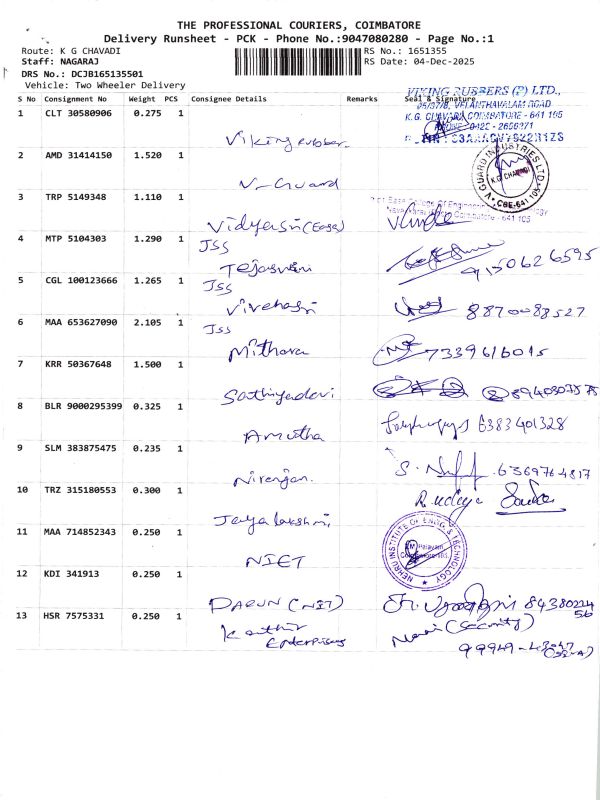 THE PROFESSIONAL COURIERS, COIMBATORE
Delivery Runsheet - PCK - Phone No.:9047080280 - Page No.:1
Route: K G CHAVADI RS No.: 1651355
Staff: NAGARAJ RS Date: 04-Dec-2025
DRS No.: DCJB165135501
Vehicle: Two Wheeler Delivery
S No Consignment No Weight PCS Consignee Details Remarks Seal & Signature
VIKING RUBBERS (P) LTD.,
VELANTHAVALAM ROAD
K.G. CHAVADI, COIMBATORE - 641 105
1 CLT 30580906 0.275 1
Viking rubber
2 AMD 31414150 1.520 1
V-Guard
V GUARD INDUSTRIES LTD
K.G. CHAVADI
CBE-641 105
3 TRP 5149348 1.110 1
Coimbatore - 641 105
Vidyasri (Easa)
4 MTP 5104303 1.290 1
JSS
Tejaswini 9150626595
5 CGL 100123666 1.265 1
JSS
8870083527
6 MAA 653627090 2.105 1
JSS
Mithara 7339616015
7 KRR 50367648 1.500 1
Sathiyadevi
8 BLR 9000295399 0.325 1
Amutha 6383401328
9 SLM 383875475 0.235 1
Niranjan 6369764817
10 TRZ 315180553 0.300 1
R. udaya
Jayalakshmi
11 MAA 714852343 0.250 1
NEHRU INSTITUTE OF ENGG & TECHNOLOGY
NIET
12 KDI 341913 0.250 1
DARUN (NIT) 8438022456
13 HSR 7575331 0.250 1
Enterprises
(Security)